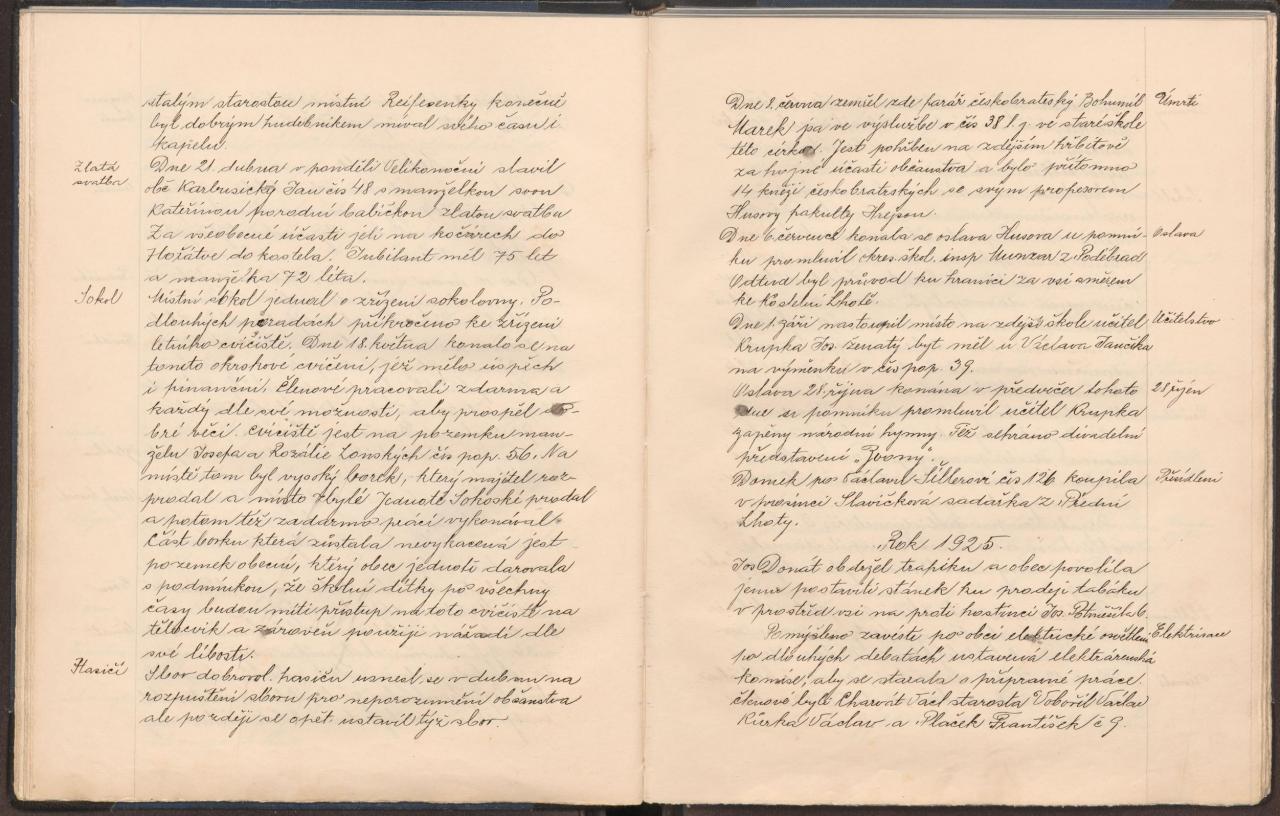 stalým starostou místní Reifesenky konečně
byl dobrým hudebníkem míval svého času i
kapelu.
Zlatá
svatba
Dne 21. dubna v pondělí Velikonoční slavil
obč Karbusický Jan čís 48 s manželkou svou
Kateřinou porodní babičkou zlatou svatbu
Za všeobecné účasti jeli na kočárech do
Hořátve do kostela. Jubilant měl 75 let
a manželka 72 léta.
Sokol
Místní sokol jednal o zřízení sokolovny. Po-
dlouhých poradách přikročeno ke zřízení
letního cvičiště. Dne 18. května konalo se na
tomto okrskové cvičení, jež mělo úspěch
i finanční. Členové pracovali zdarma a
každý dle své možnosti, aby prospěl do-
bré věci. Cvičiště jest na pozemku man-
želu Josefa a Rozálie Lonských čís pop. 56. Na
místě tom byl vysoký borek, který majitel roz-
prodal a místo zbylé Jednotě Sokolské prodal
a potom též zadarmo práci vykonával.
Část borku která zůstala nevykacená jest
pozemek obecní, který obec jednotě darovala
s podmínkou, že školní dítky po všechny
časy budou míti přístup na toto cvičiště na
tělocvik a zároveň použijí nářadí dle
své libosti.
Hasiči
Sbor dobrovol. hasičů usnesl se v dubnu na
rozpuštění sboru pro neporozumění občanstva
ale později se opět ustavil týž sbor.
Dne 8. června zemřel zde farář českobratský Bohumil
Úmrtí
Marek jsa ve výslužbe v čís 38 t.j. ve staré škole
této církve. Jest pohřben na zdejším hřbitově
za hojné účasti občanstva a bylo přítomno
14 kněží českobratrských se svým profesorem
Husovy fakulty Hrejsou.
Dne 6. července konala se oslava Husova u pomní-
Oslava
ku promluvil okres. škol. insp Munzar z Poděbrad
Odtud byl průvod ku hranici za vsí směrem
ke Kostelní Lhotě.
Dne 1. září nastoupil místo na zdejší škole učitel
Učitelstvo
Krupka Jos. ženatý. byt měl u Václava Jančíka
na výměnku v čís pop. 39.
Oslava 28. října konána v předvečer tohoto
28 říjen
dne u pomníku promluvil učitel Krupka
zapěny národní hymny. Též sehráno divadelní
představení „Zvony".
Domek po Václavu Šillerovi čís 126 koupila
Přesídlení
v prosinci Slavíčková sadařka z Přední
Lhoty.
Rok 1925.
Jos Donát obdržel trafiku a obec povolila
jemu postaviti stánek ku prodeji tabáku
v prostřed vsi na proti hostinci Jos. Potměšila 6.
Pomýšleno zavésti po obci elektrické osvětlení
Elektrisace
po dlouhých debatách ustavená elektrárenská
komise, aby se starala o přípravné práce.
členové byli Charvát Václ starosta Vobořil Václav
Kůrka Václav a Plaček František č 9.